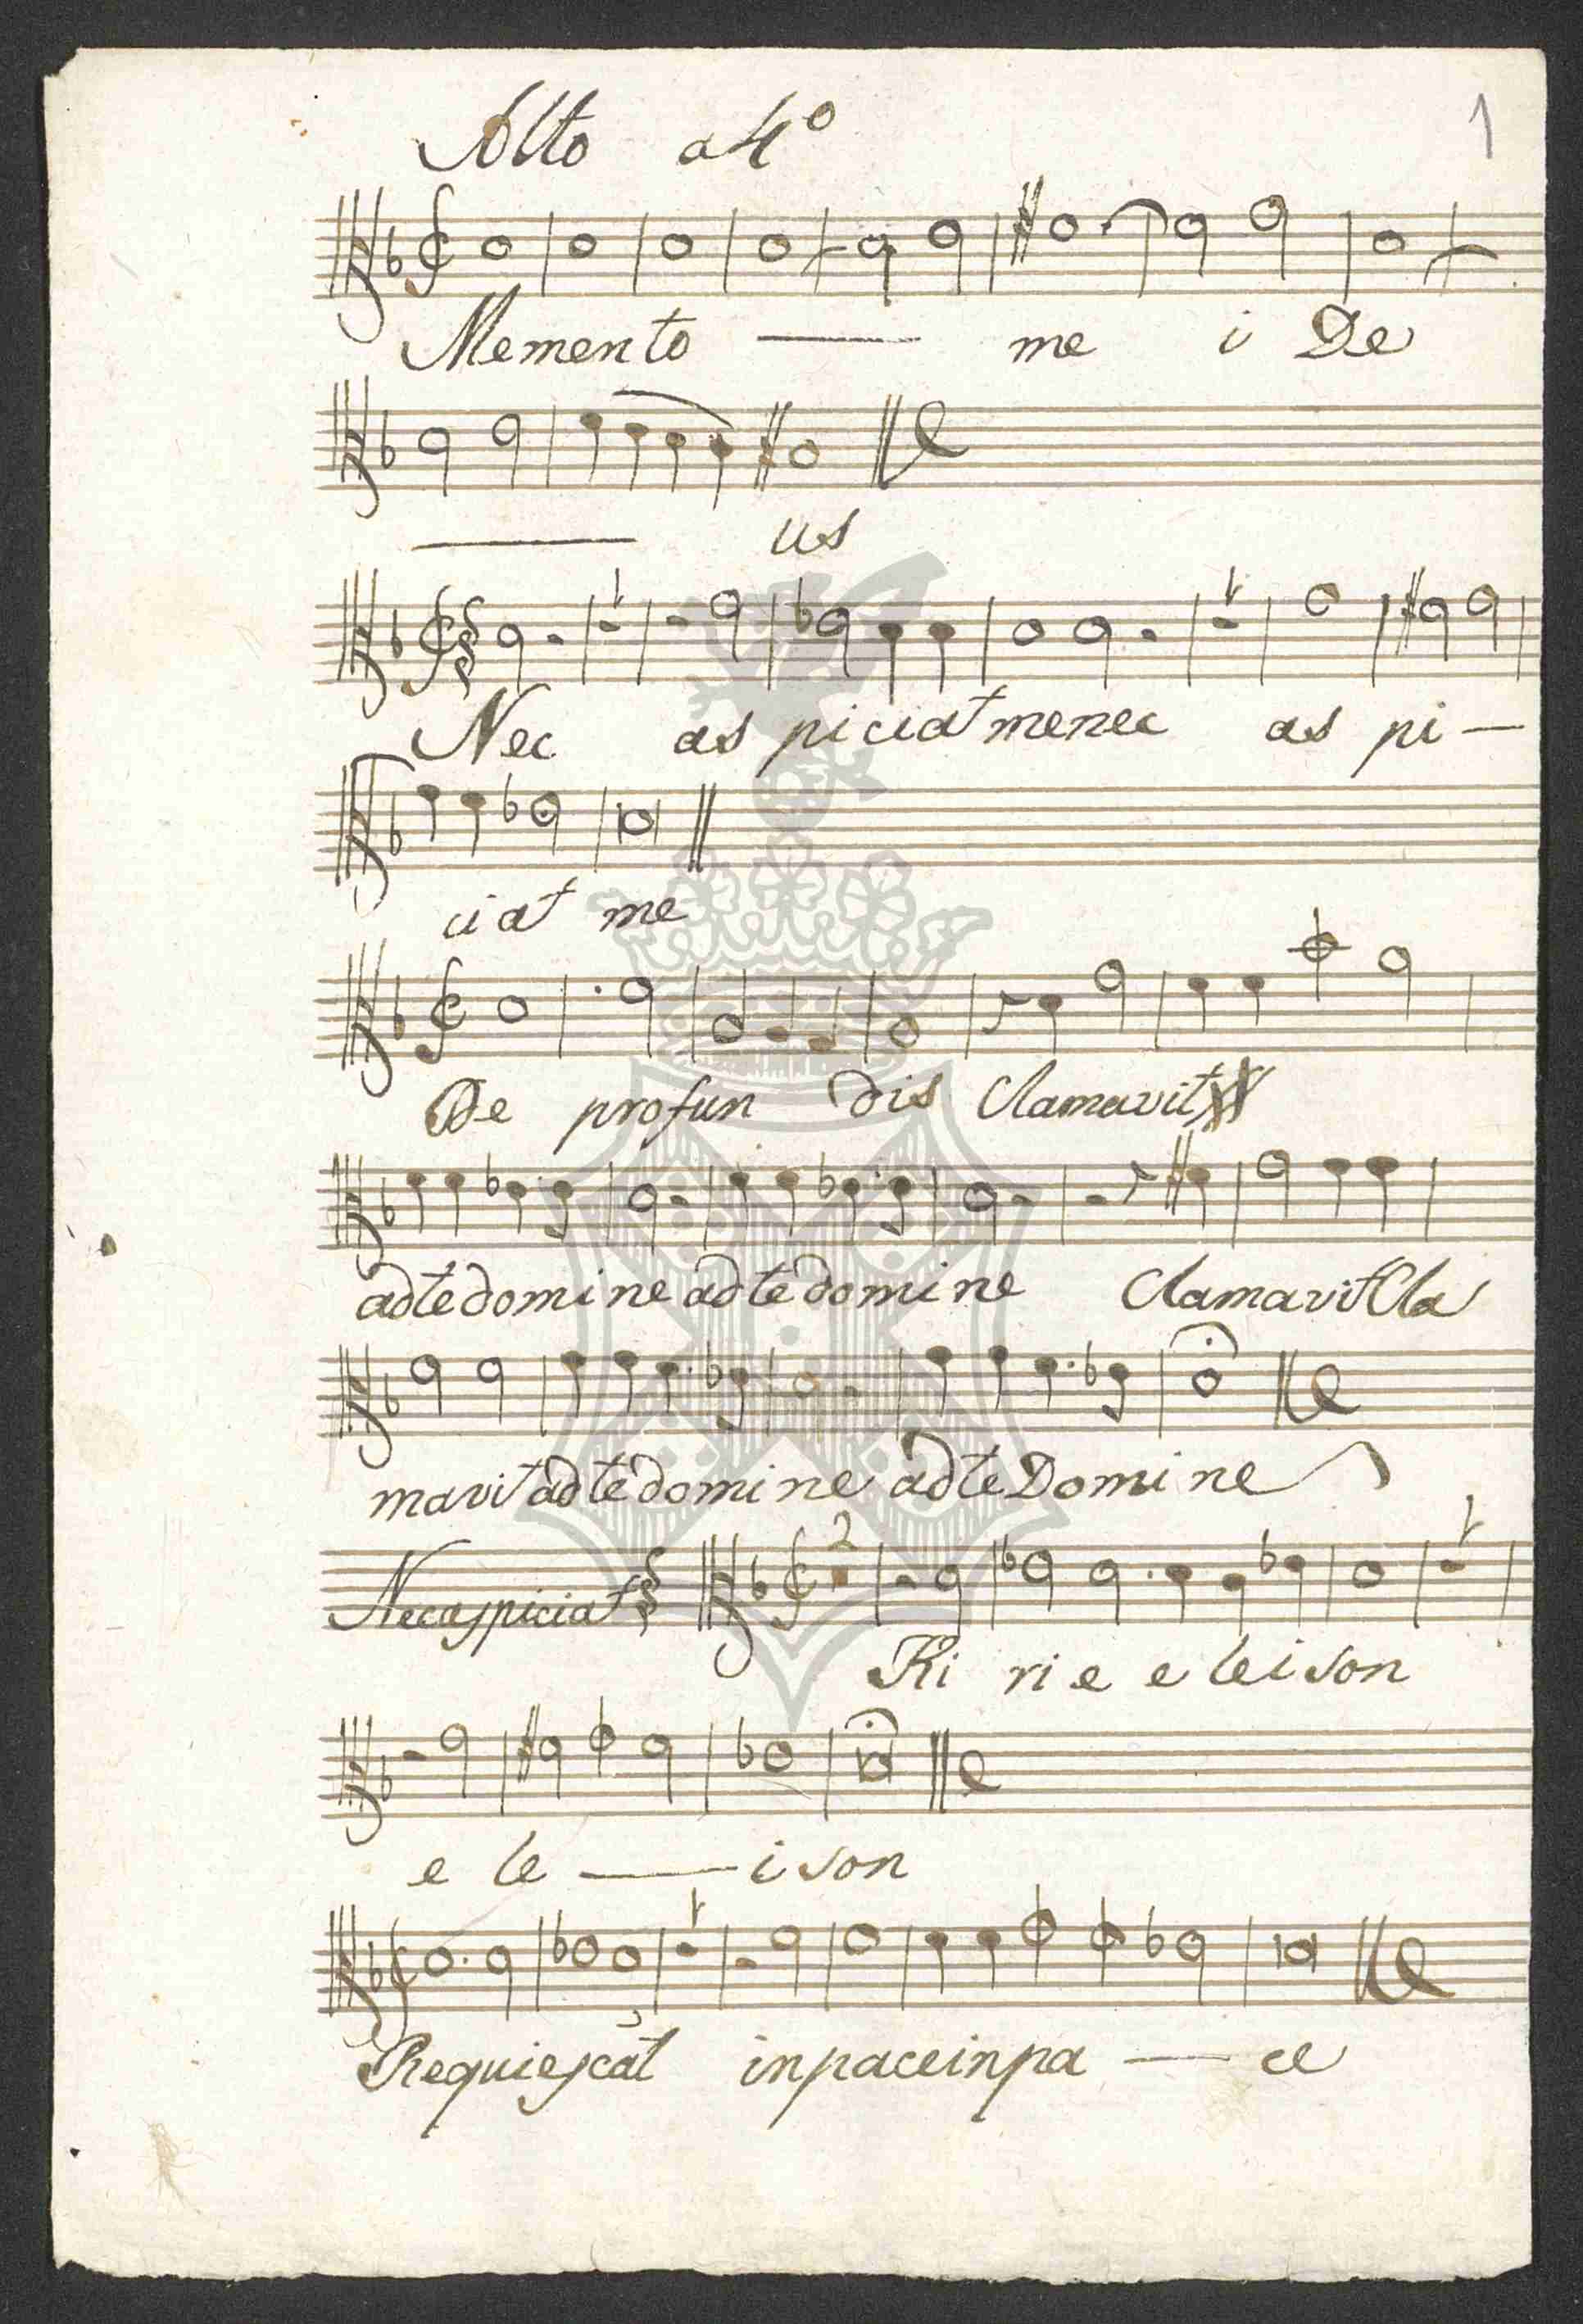 Alto a 4º
1
Memento — me i De
— us
Nec as piciat menec as pi —
ciat me
De profun dis Clamavit
adtedomine adtedomine ClamavitCla
mavitadtedomine adteDomine
Necaspiciat
2
Ki ri e e leison
e le — i son
Requiescat inpaceinpa — ce